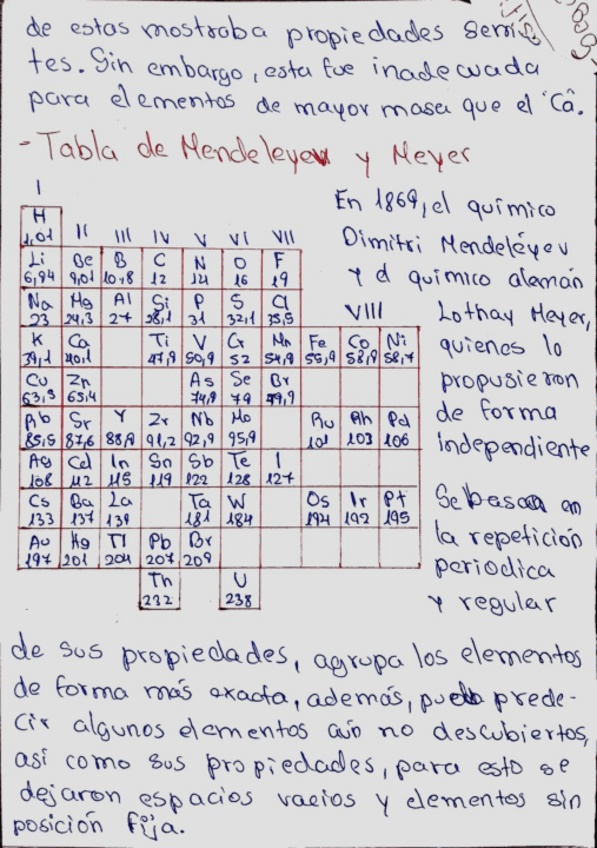 de estas mostraba propiedades semi
tes. Sin embargo, esta fue inadecuada
para elementos de mayor masa que el Ca.
- Tabla de Mendeleyev y Meyer
I
H
1,01 II III IV V VI VII
Li Be B C N O F
6,94 9,01 10,8 12 14 16 19
Na Mg Al Si P S Cl
23 24,3 27 28,1 31 32,1 35,5 VIII
K Ca Ti V Cr Mn Fe Co Ni
39,1 40,1 47,9 50,9 52 54,9 55,9 58,9 58,7
Cu Zn As Se Br
63,5 65,4 74,9 79 79,9
Rb Sr Y Zr Nb Mo Ru Rh Pd
85,5 87,6 88,9 91,2 92,9 95,9 101 103 106
Ag Cd In Sn Sb Te I
108 112 115 119 122 128 127
Cs Ba La Ta W Os Ir Pt
133 137 139 181 184 194 192 195
Au Hg Tl Pb Br
197 201 204 207 209
Th U
232 238
En 1869, el químico
Dimitri Mendeléyev
y el químico alemán
Lothay Meyer,
quienes lo
propusieron
de forma
independiente
Se basan en
la repetición
periodica
y regular
de sus propiedades, agrupa los elementos
de forma más exacta, además, pudo prede-
cir algunos elementos aún no descubiertos,
así como sus propiedades, para esto se
dejaron espacios vacios y elementos sin
posición fija.